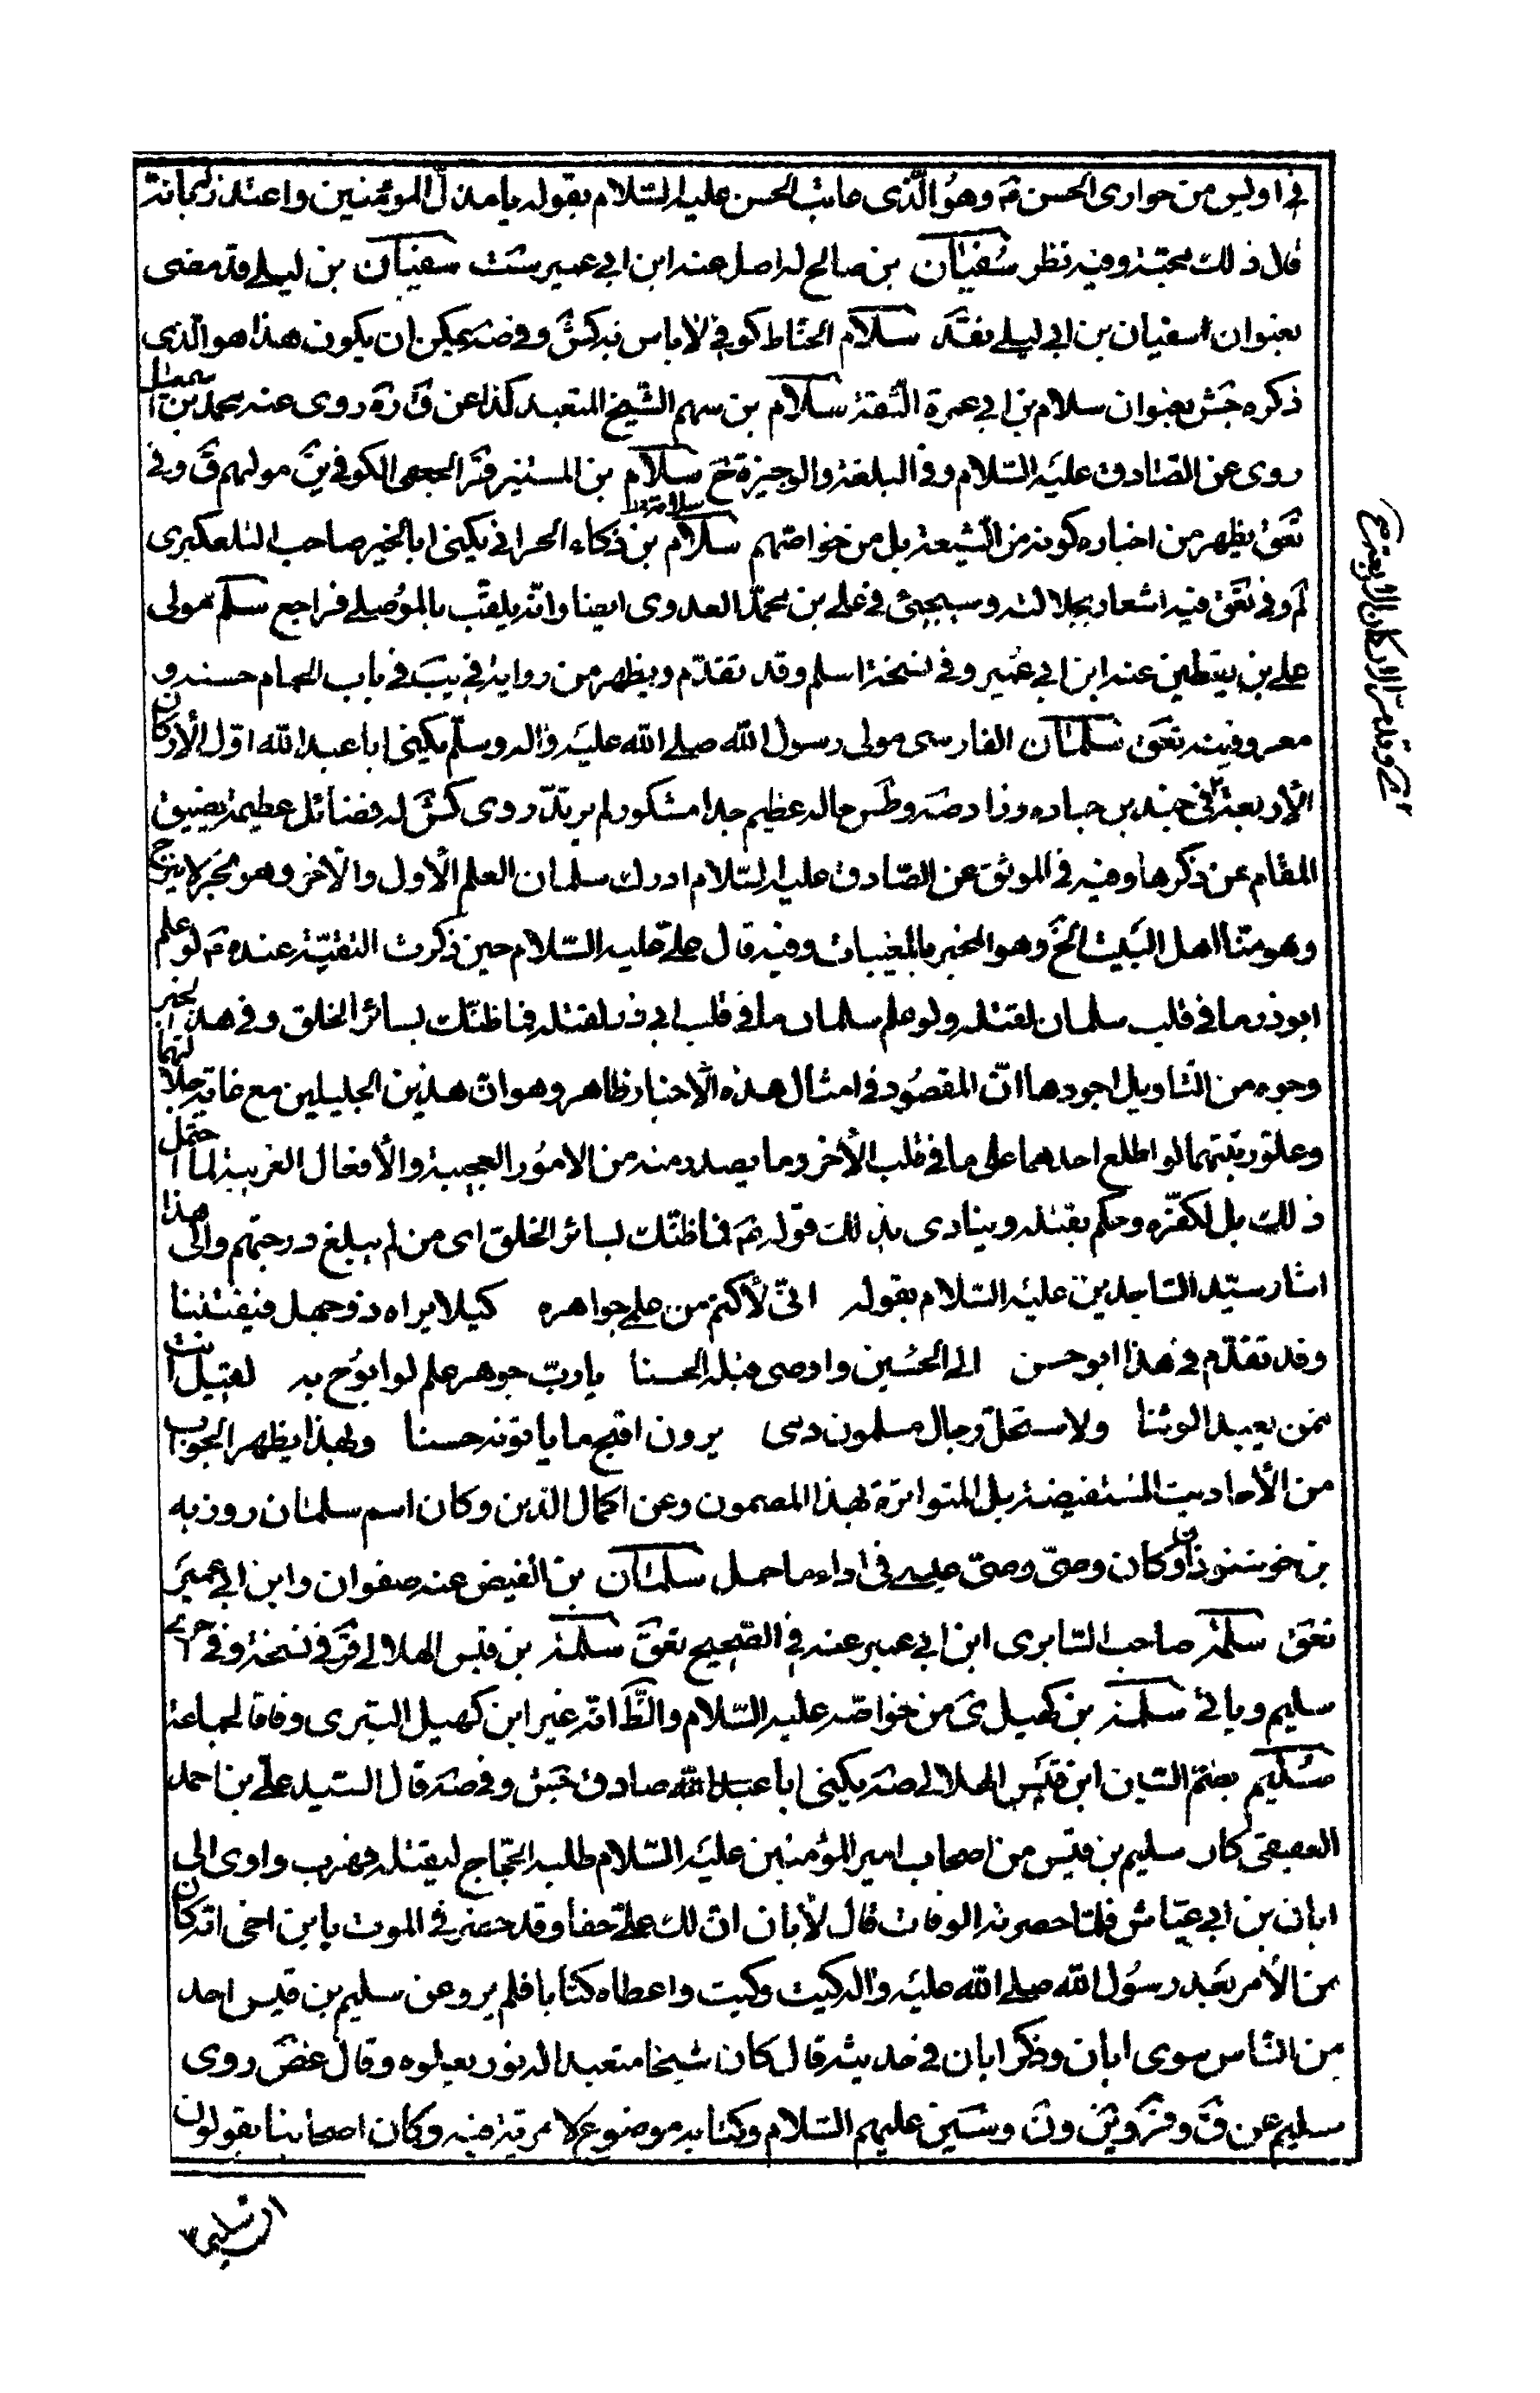 في اويس من حوارى الحسن ع وهو الّذى عاتب الحسن عليه السّلام بقوله يا مذلّ المؤمنين واعتذر له بانه
قال ذلك محبّة وفيه نظر سُفيَان بن صالح له اصل عنه ابن ابي عمير ست سفيَان بن ليلى قد مضى
بعنوان سفيان بن ابي ليلى تقدّ سَلام الحنّاط كوفي لا باس به كش وفي صه يمكن ان يكون هذا هو الّذى
ذكره جش بعنوان سلام بن ابي عمرة الثقة سَلام بن سهم الشّيخ المتعبد كذا عن ق ره روى عنه محمد بن اسمعيل
روى عن الصّادق عليه السّلام وفي البلغة والوجيزة ح سَلام بن المستنير قر الجعفى الكوفي ين مولهم ق وفي
تعق يظهر من اخباره كونه من الشّيعة بل من خواصّهم سَلامة بن ذكاء الحرانى يكنى ابا الخير صاحب التلعكبرى
لم وفي تعق فيه اشعار بجلالته وسيجيئ في علي بن محمّد العدوى ايضا وانّه يلقّب بالموُصلي فراجع سلم مولى
علي بن يقطين عنه ابن ابي عُمير وفي نسخة اسلم وقد تقدّم ويظهر من رواية في يب في باب الحمام حسنه و
معروفيته تعق سَلمَان الفارسى مولى رسول الله صلى الله عليه واله وسلّم يكنى ابا عبد الله اوّل الأركان
الأربعة في جنيد بن جناده وزاد صه وطس حاله عظيم جدا مشكور لم يرتدّ روى كش له فضائل عظيمة يضيق
المقام عن ذكرها وفيه في الموثق عن الصّادق عليه السّلام ادرك سلمان العلم الأول والآخر وهو بحر لا ينزح
وهو منّا اهل البَيت الخ وهو المخبر بالمغيبات وفيه قال علي عليه السّلام حين ذكرت التقيّة عنده ع لو علم
ابوذر ما في قلب سلمان لقتله ولو علم سلمان ما في قلب ابي ذر لقتله فما ظنّك بسائر الخلق وفي هذا الخبر
وجوه من التّاويل اجودها انّ المقصُود في امثال هذه الأخبار ظاهر وهو ان هذين الجليلين مع غاية جلالتهما
وعلو رتبتهما لو اطلع احدهما على ما في قلب الأخر وما يصدر منه من الامُور العجيبة والأفعال الغريبة لما احتمل
ذلك بل لكفّره وحكم بقتله وينادى بذلك قوله ع فما ظنّك بسائر الخلق اى من لم يبلغ درجتهم والى هذا
اشار سيّد السّاجدين عليه السّلام بقوله انّى لأكتم من علمي جواهره كيلا يراه ذو جهل فيفتننا
وقد تقدّم في هذا ابو حسن الى الحسُين واوصى قبله الحسنا يا ربّ جوهر علم لو ابوُح به لقيل انت
ممن يعبد الوثنا ولا ستحلّ رجال مسلمون دمى يرون اقبح ما ياتونه حسنا وبهذا يظهر الجواب
من الأحاديث المستفيضة بل المتواترة لهذا المضمون وعن اكمال الدّين وكان اسم سلمان روزبه
بن خوشنوذان وكان وصىّ وصىّ عيسى في اداء ما حمل سَلمَان بن الفيض عنه صفوان وابن ابي عمير
تعق سلمَة صاحب السّابرى ابن ابي عمير عنه في الصّحيح تعق سلمَة بن قيس الهلالي قر في نسخة وفي اخرى
سليم وياتي سلمَة بن كهيل ى من خواصّه عليه السّلام والظّ انّه غير ابن كهيل البترى وفاقا لجماعة
سُليم بضمّ السّين ابن قيَس الهلالي صه يكنى ابا عبد الله صادق جش وفي صه قال السّيد علي بن احمد
العقيقى كان سليم بن قيس من اصحاب امير المؤمنين عليه السّلام طلبه الحجّاج ليقتله فهرب واوى الى
ابان بن ابي عيّاش فلمّا حضرته الوفات قال لأبان ان لك علي حقا وقد حضرنى الموت يا بن اخى انّه كان
من الأمر بعَد رسوُل الله صلى الله عليه واله كيت وكيت واعطاه كتابا فلم يرو عن سليم بن قيس احد
من النّاس سوى ابان وذكر ابان في حديثه قال كان شيخا متعبدا له نور يعلوه وقال غض روى
سليم عن ق وقر وين ون وسين عليهم السّلام وكتابه موضوع لا مرية فيه وكان اصحابنا يقولون
ان سليم